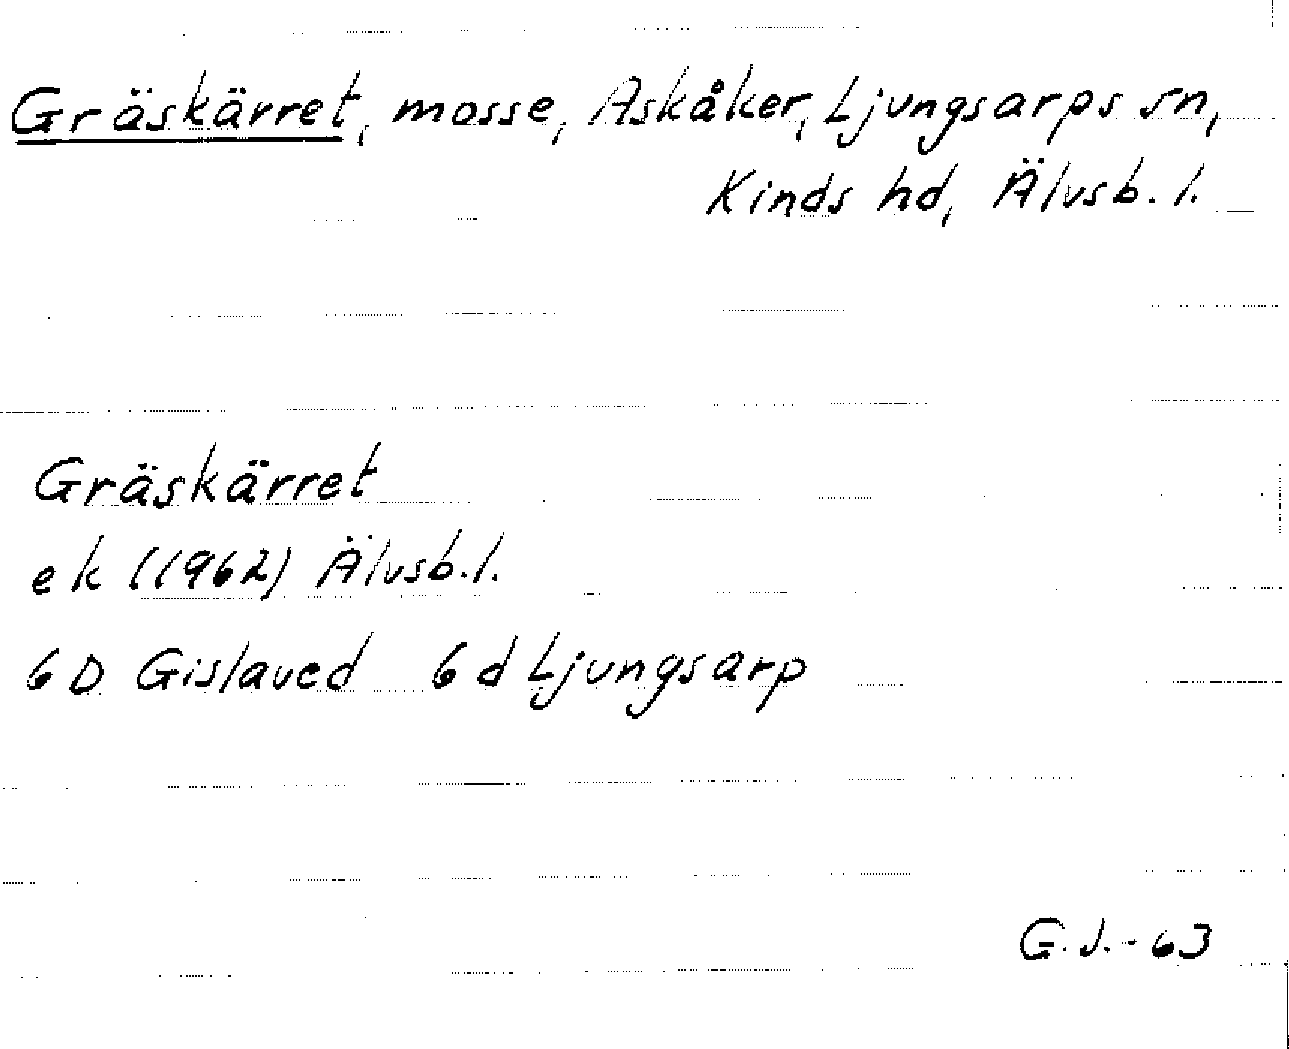 Gräskärret, mosse, Askåker, Ljungsarps sn,
Kinds hd, Älvsb. l.
Gräskärret
ek (1962) Älvsb. l.
6 D Gislaved 6 d Ljungsarp
G. J. - 63